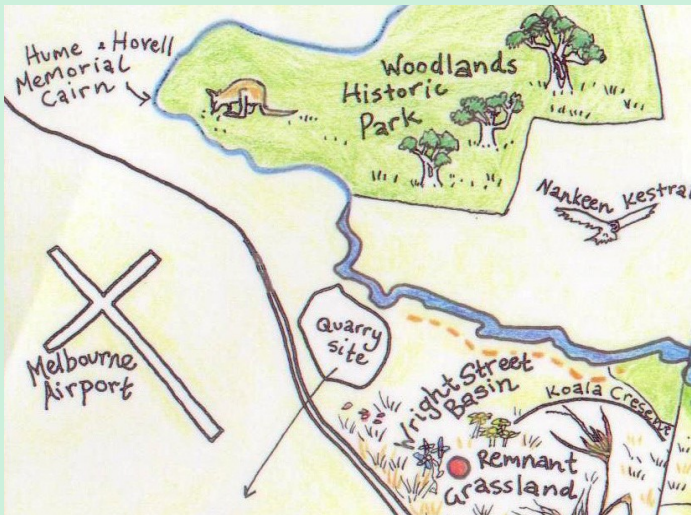 Hume & Hovell
Memorial
Cairn
Woodlands
Historic
Park
Nankeen Kestral
Quarry
site
Melbourne
Airport
Wright Street
Basin
Koala Cresent
Remnant
Grassland